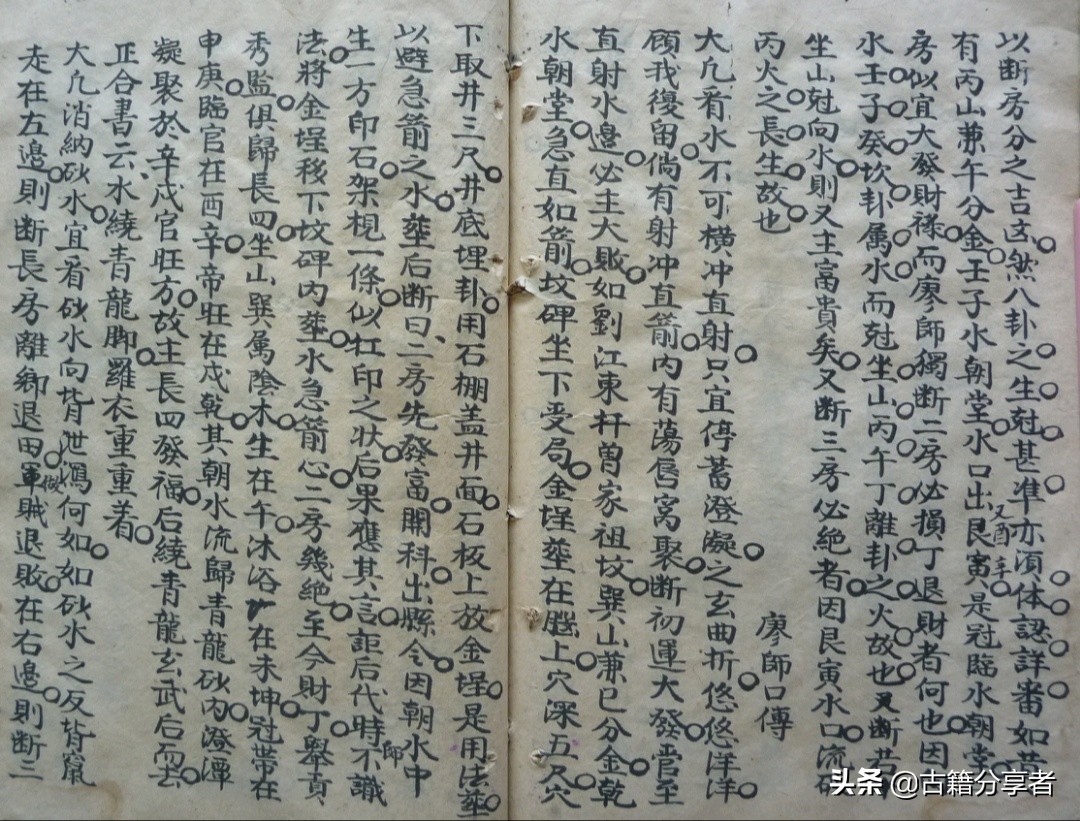 以断房分之吉凶然八卦之生尅甚準亦須体認詳審如
有丙山兼午分金壬子水朝堂水口出艮寅是冠臨水朝堂
又酉辛
房似宜大發財禄而廖師獨断二房必損丁退財者何也因
水壬子癸坎卦属水而尅坐山丙午丁離卦之火故也又断
坐山尅向水則又主富貴矣又断三房必絶者因艮寅水口流
丙火之長生故也
廖師口傳
大凢看水不可横冲直射只宜停蓄澄凝之玄曲折悠悠洋洋
顧我復留倘有射冲直箭内有蕩唇窝聚断初運大發官至
直射水邉必主大敗如劉江東扞曽家祖坟巽山兼巳分金乾
水朝堂急直如箭坟碑坐下受局金埕塟在壋上穴深五尺穴
下取井三尺井底埋卦用石棚盖井面石板上放金埕是用法塟
以避急箭之水塟后断曰二房先發富開科出縣令因朝水中
生一方印石架梘一條似扛印之状后果應其言詎后代時不識
師
法將金埕移下坟碑内塟水急箭心二房幾絶至今財丁舉貢
秀監俱歸長四坐山巽属陰木生在午沐浴在未坤冠帯在
申庚臨官在酉辛帝旺在戌乾其朝水流歸青龍砂内澄潭
凝聚於辛戌官旺方故主長四發福后繞青龍玄武后而去
正合書云水繞青龍脚羅衣重重着
大凢消納砂水宜看砂水向背泄瀉何如如砂水之反背竄
走在左邉則断長房離鄉退田軍賊退敗在右邉則断三
做
头条 @古籍分享者